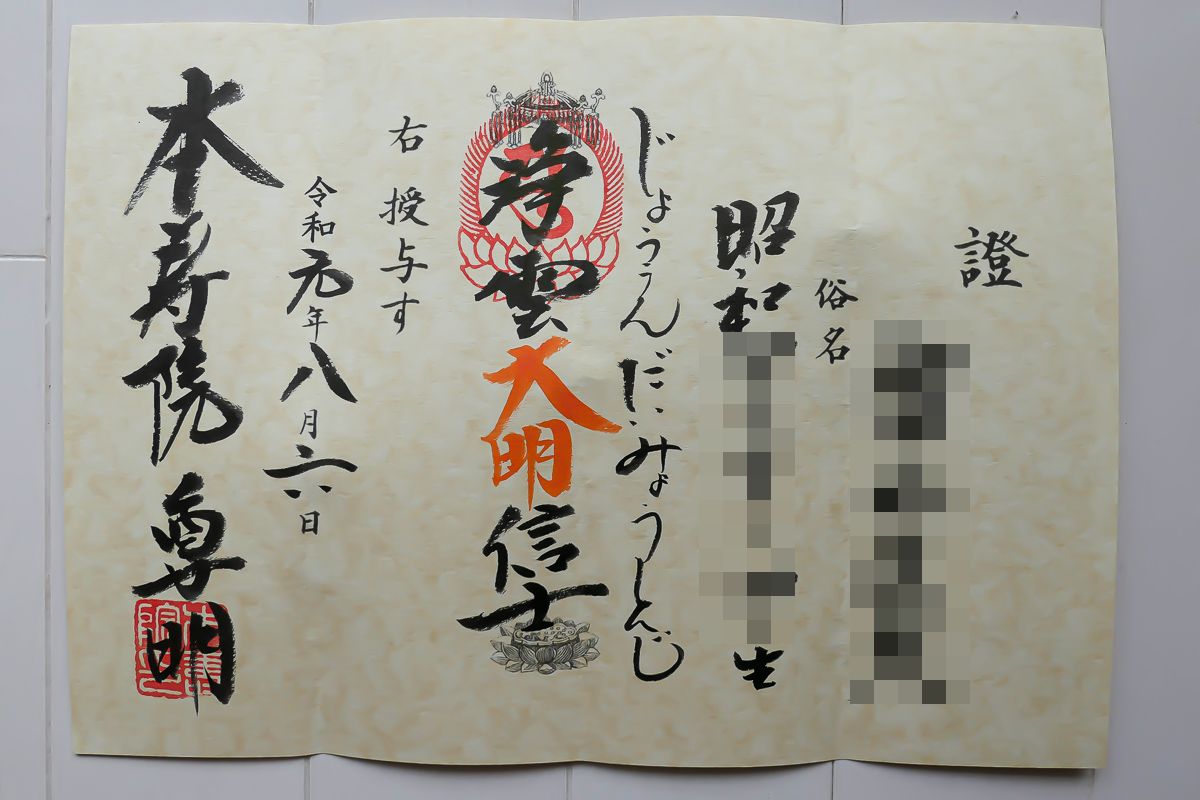 證
俗名
昭和
生
じょううんだいみょうしんじ
浄雲大明信士
右授与す
令和元年八月六日
本寿院 尊明